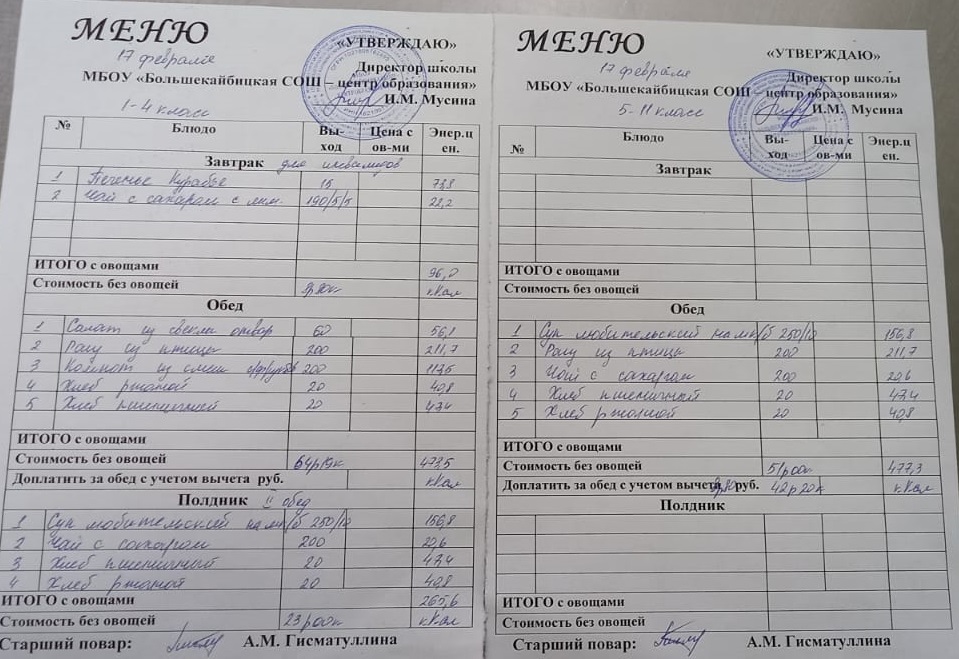 МЕНЮ
17 февраля
«УТВЕРЖДАЮ»
Директор школы
МБОУ «Большекайбицкая СОШ – центр образования»
И.М. Мусина
1-4 класс
№ Блюдо Вы-ход Цена с ов-ми Энер.ц ен.
Завтрак для инвалидов
1 Печенье Курабье 15 73,8
2 Чай с сахаром с лим. 190/5/5 22,2
ИТОГО с овощами 96,0
Стоимость без овощей кКал
Обед
1 Салат из свеклы отвар 60 56,1
2 Рагу из птицы 200 211,7
3 Компот из смеси 200
4 Хлеб ржаной 20 40,8
5 Хлеб пшеничный 20 47,4
ИТОГО с овощами
Стоимость без овощей 64р19к 473,5
Доплатить за обед с учетом вычета руб. кКал
Полдник II обед
1 Суп любительский на мк/б 250/10 156,8
2 Чай с сахаром 200 20,6
3 Хлеб пшеничный 20 47,4
4 Хлеб ржаной 20 40,8
ИТОГО с овощами 265,6
Стоимость без овощей 23р00к кКал
Старший повар: А.М. Гисматуллина
МЕНЮ
17 февраля
«УТВЕРЖДАЮ»
Директор школы
МБОУ «Большекайбицкая СОШ – центр образования»
И.М. Мусина
5-11 класс
№ Блюдо Вы-ход Цена с ов-ми Энер.ц ен.
Завтрак
ИТОГО с овощами
Стоимость без овощей
Обед
1 Суп любительский на мк/б 250/10 156,8
2 Рагу из птицы 200 211,7
3 Чай с сахаром 200 20,6
4 Хлеб пшеничный 20 47,4
5 Хлеб ржаной 20 40,8
ИТОГО с овощами
Стоимость без овощей 51р00к 477,3
Доплатить за обед с учетом вычета руб. 42р20к кКал
Полдник
ИТОГО с овощами
Стоимость без овощей
Старший повар: А.М. Гисматуллина